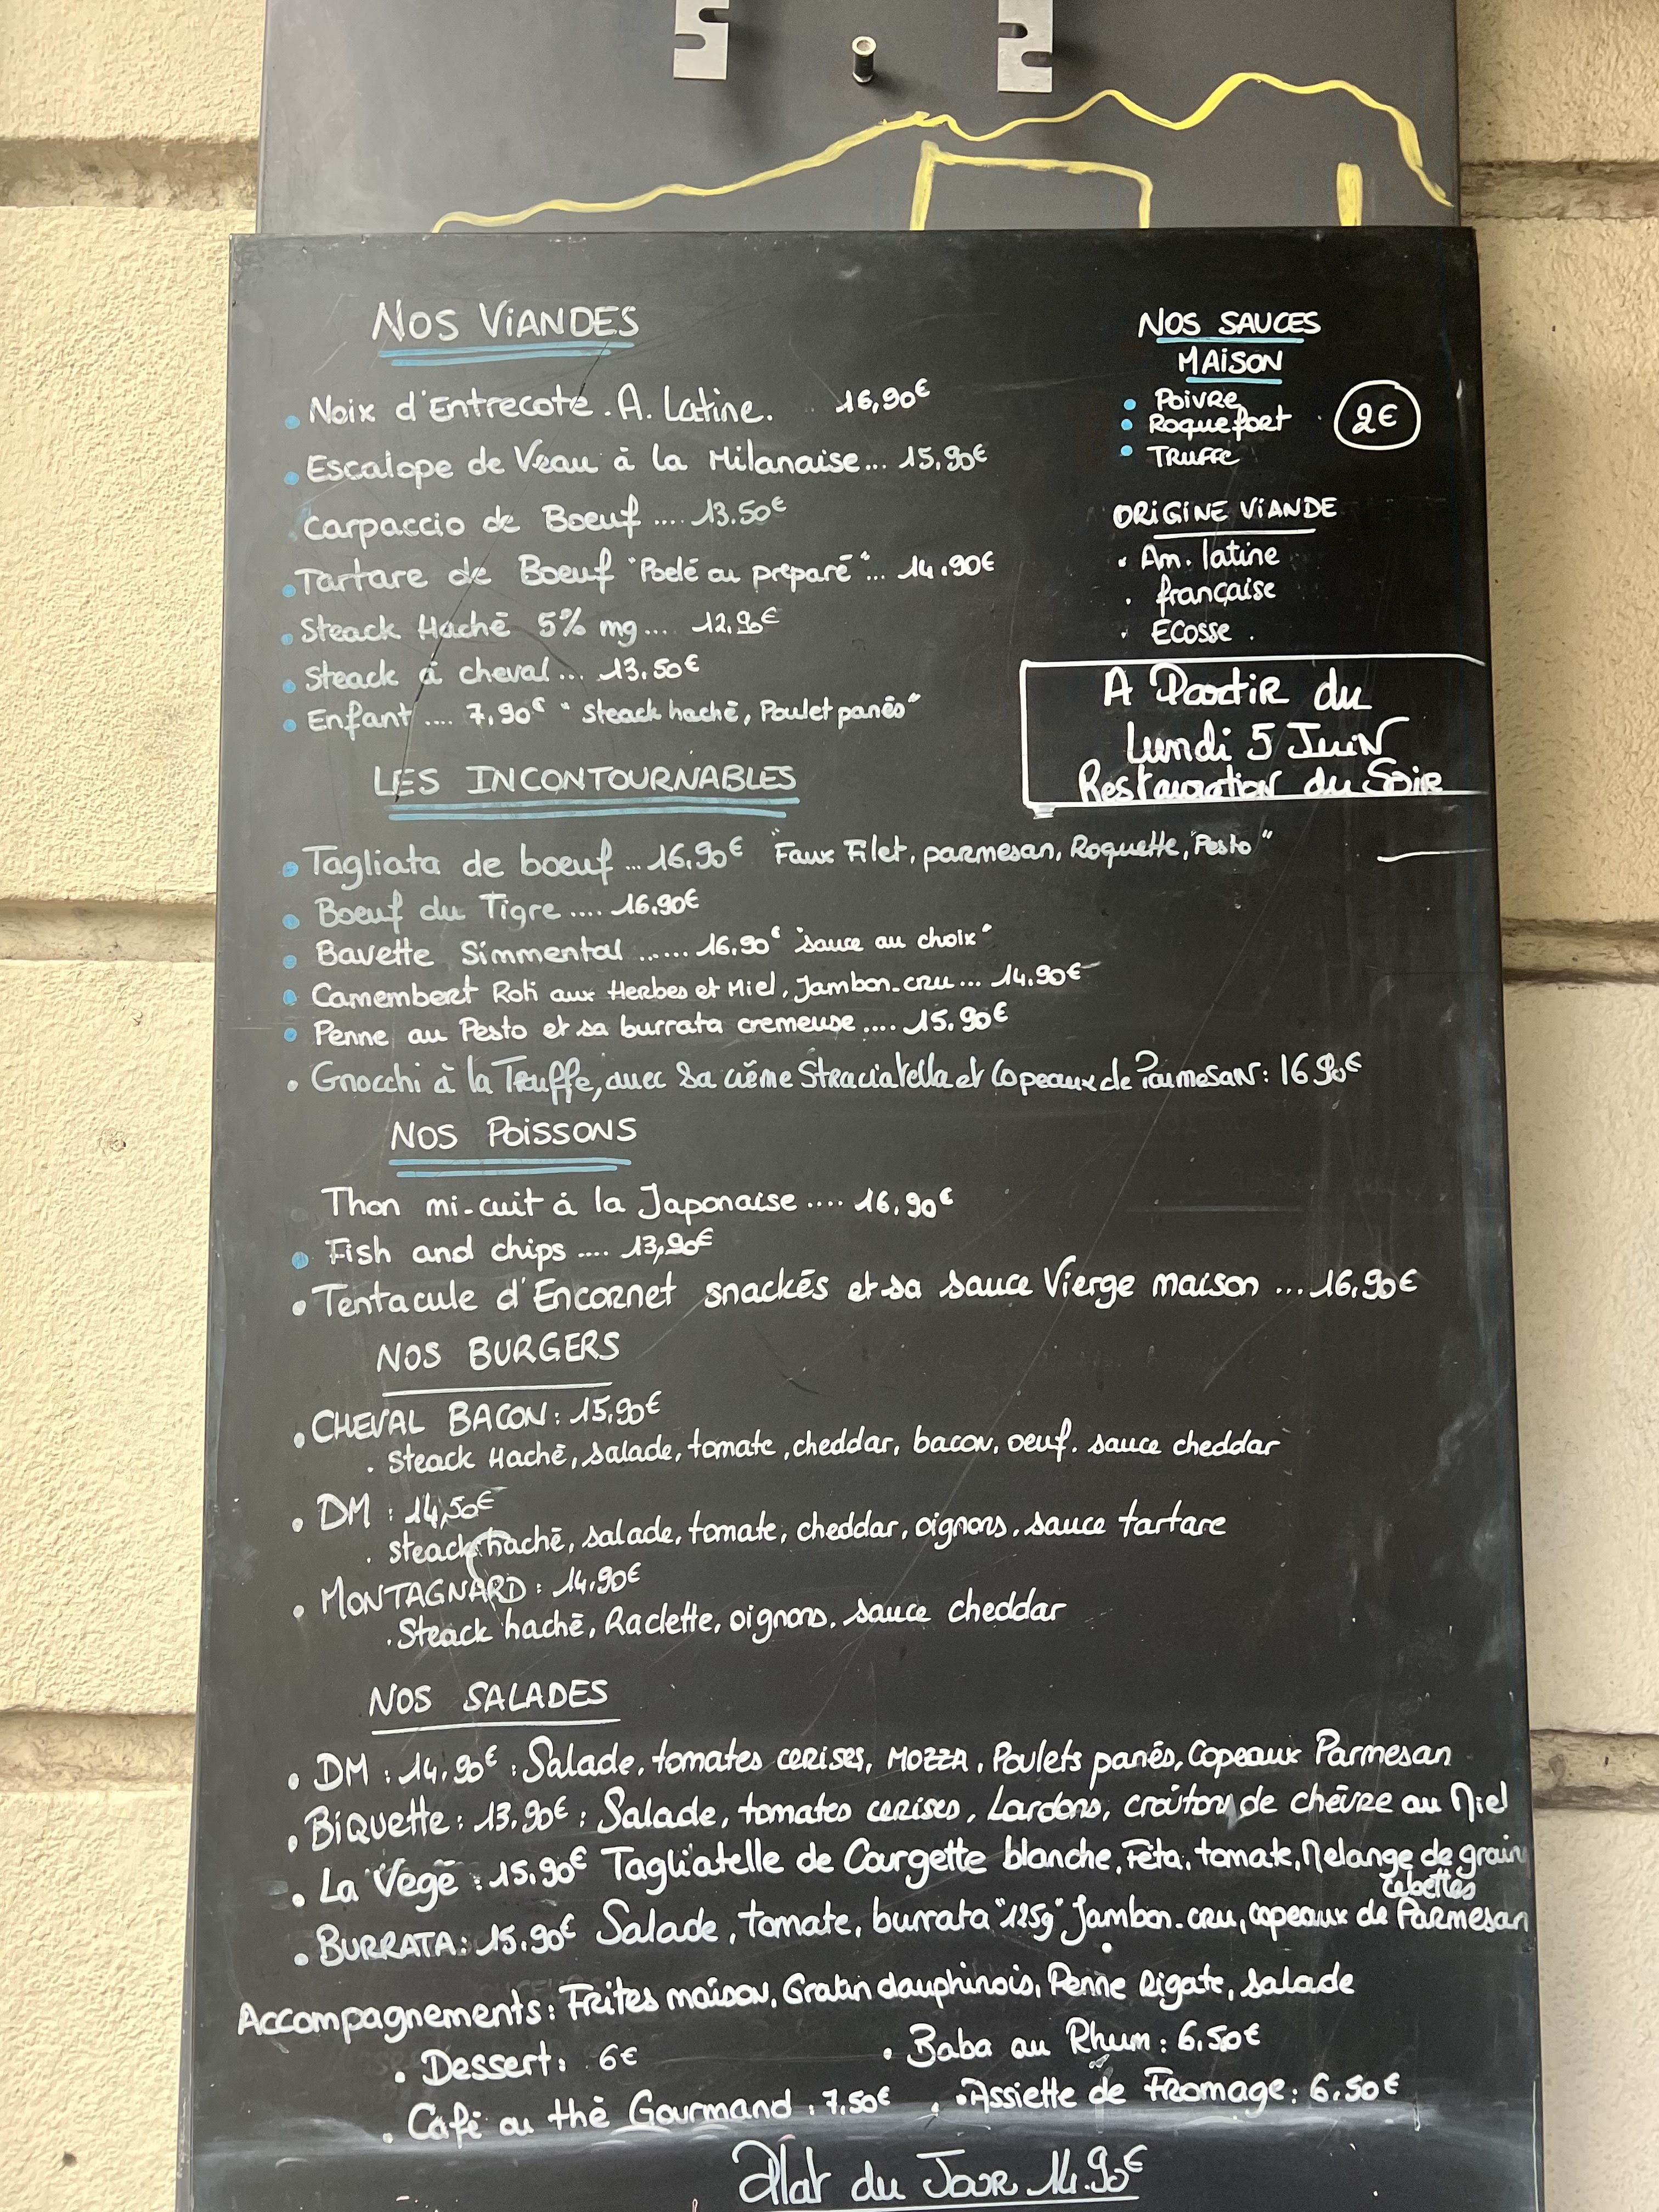 NOS ViANDES
Noix d'Entrecote. A. Latine. .. 16,90€
Escalope de Veau à la Milanaise... 15,90€
Carpaccio de Boeuf .... 13.50€
Tartare de Boeuf "Poelé ou préparé"... 14.90€
Steack Haché 5% mg.... 12.90€
Steack à cheval... 13.50€
Enfant .... 7.90€ "Steack haché, Poulet panés"
NOS SAUCES
MAiSON
POiVRE
Roquefort
TRuffe
2€
ORiGiNE ViANDE
Am. latine
française
Ecosse.
A Partir du
Lundi 5 Juin
Restauration du Soir
LES INCONTOURNABLES
Tagliata de boeuf ... 16,90€ "Faux Filet, parmesan, Roquette, Pesto"
Boeuf du Tigre .... 16.90€
Bavette Simmental ...... 16.90€ "sauce au choix"
Camembert Roti aux Herbes et Miel, Jambon-cru ... 14.90€
Penne au Pesto et sa burrata cremeuse .... 15.90€
Gnocchi à la Truffe, avec sa crème Straciatella et Copeaux de Parmesan: 16 90€
NOS POiSSONS
Thon mi-cuit à la Japonaise .... 16.90€
Fish and chips .... 13,90€
Tentacule d'Encornet snackés et sa sauce Vierge maison ... 16.90€
NOS BURGERS
CHEVAL BACON: 15.90€
Steack Haché, salade, tomate, cheddar, bacon, oeuf. sauce cheddar
DM : 14,50€
steack haché, salade, tomate, cheddar, oignons, sauce tartare
MONTAGNARD: 14.90€
Steack haché, Raclette, oignons, sauce cheddar
NOS SALADES
DM : 14.90€ : Salade, tomates cerises, MOZZA, Poulets panés, Copeaux Parmesan
BiQuette : 13.90€ : Salade, tomates cerises, Lardons, croutons de chèvre au Miel
La Végé : 15.90€ Tagliatelle de Courgette blanche, Féta, tomate, Melange de grain
cebettes
BURRATA: 15.90€ Salade, tomate, burrata "125g" Jambon-cru, copeaux de Parmesan
Accompagnements: Frites maison, Gratin dauphinois, Penne Rigate, salade
Dessert: 6€
Baba au Rhum : 6.50€
Café ou thé Gourmand : 7.50€
Assiette de Fromage : 6.50€
Plat du Jour 14.90€